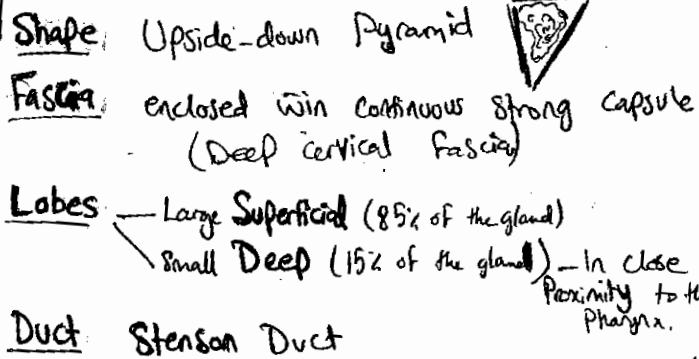 Shape Upside-down Pyramid
Fascia enclosed win continuous strong capsule
(Deep cervical fascia)
Lobes — Large Superficial (85% of the gland)
Small Deep (15% of the gland) — In close
Proximity to th
Pharynx.
Duct Stenson Duct